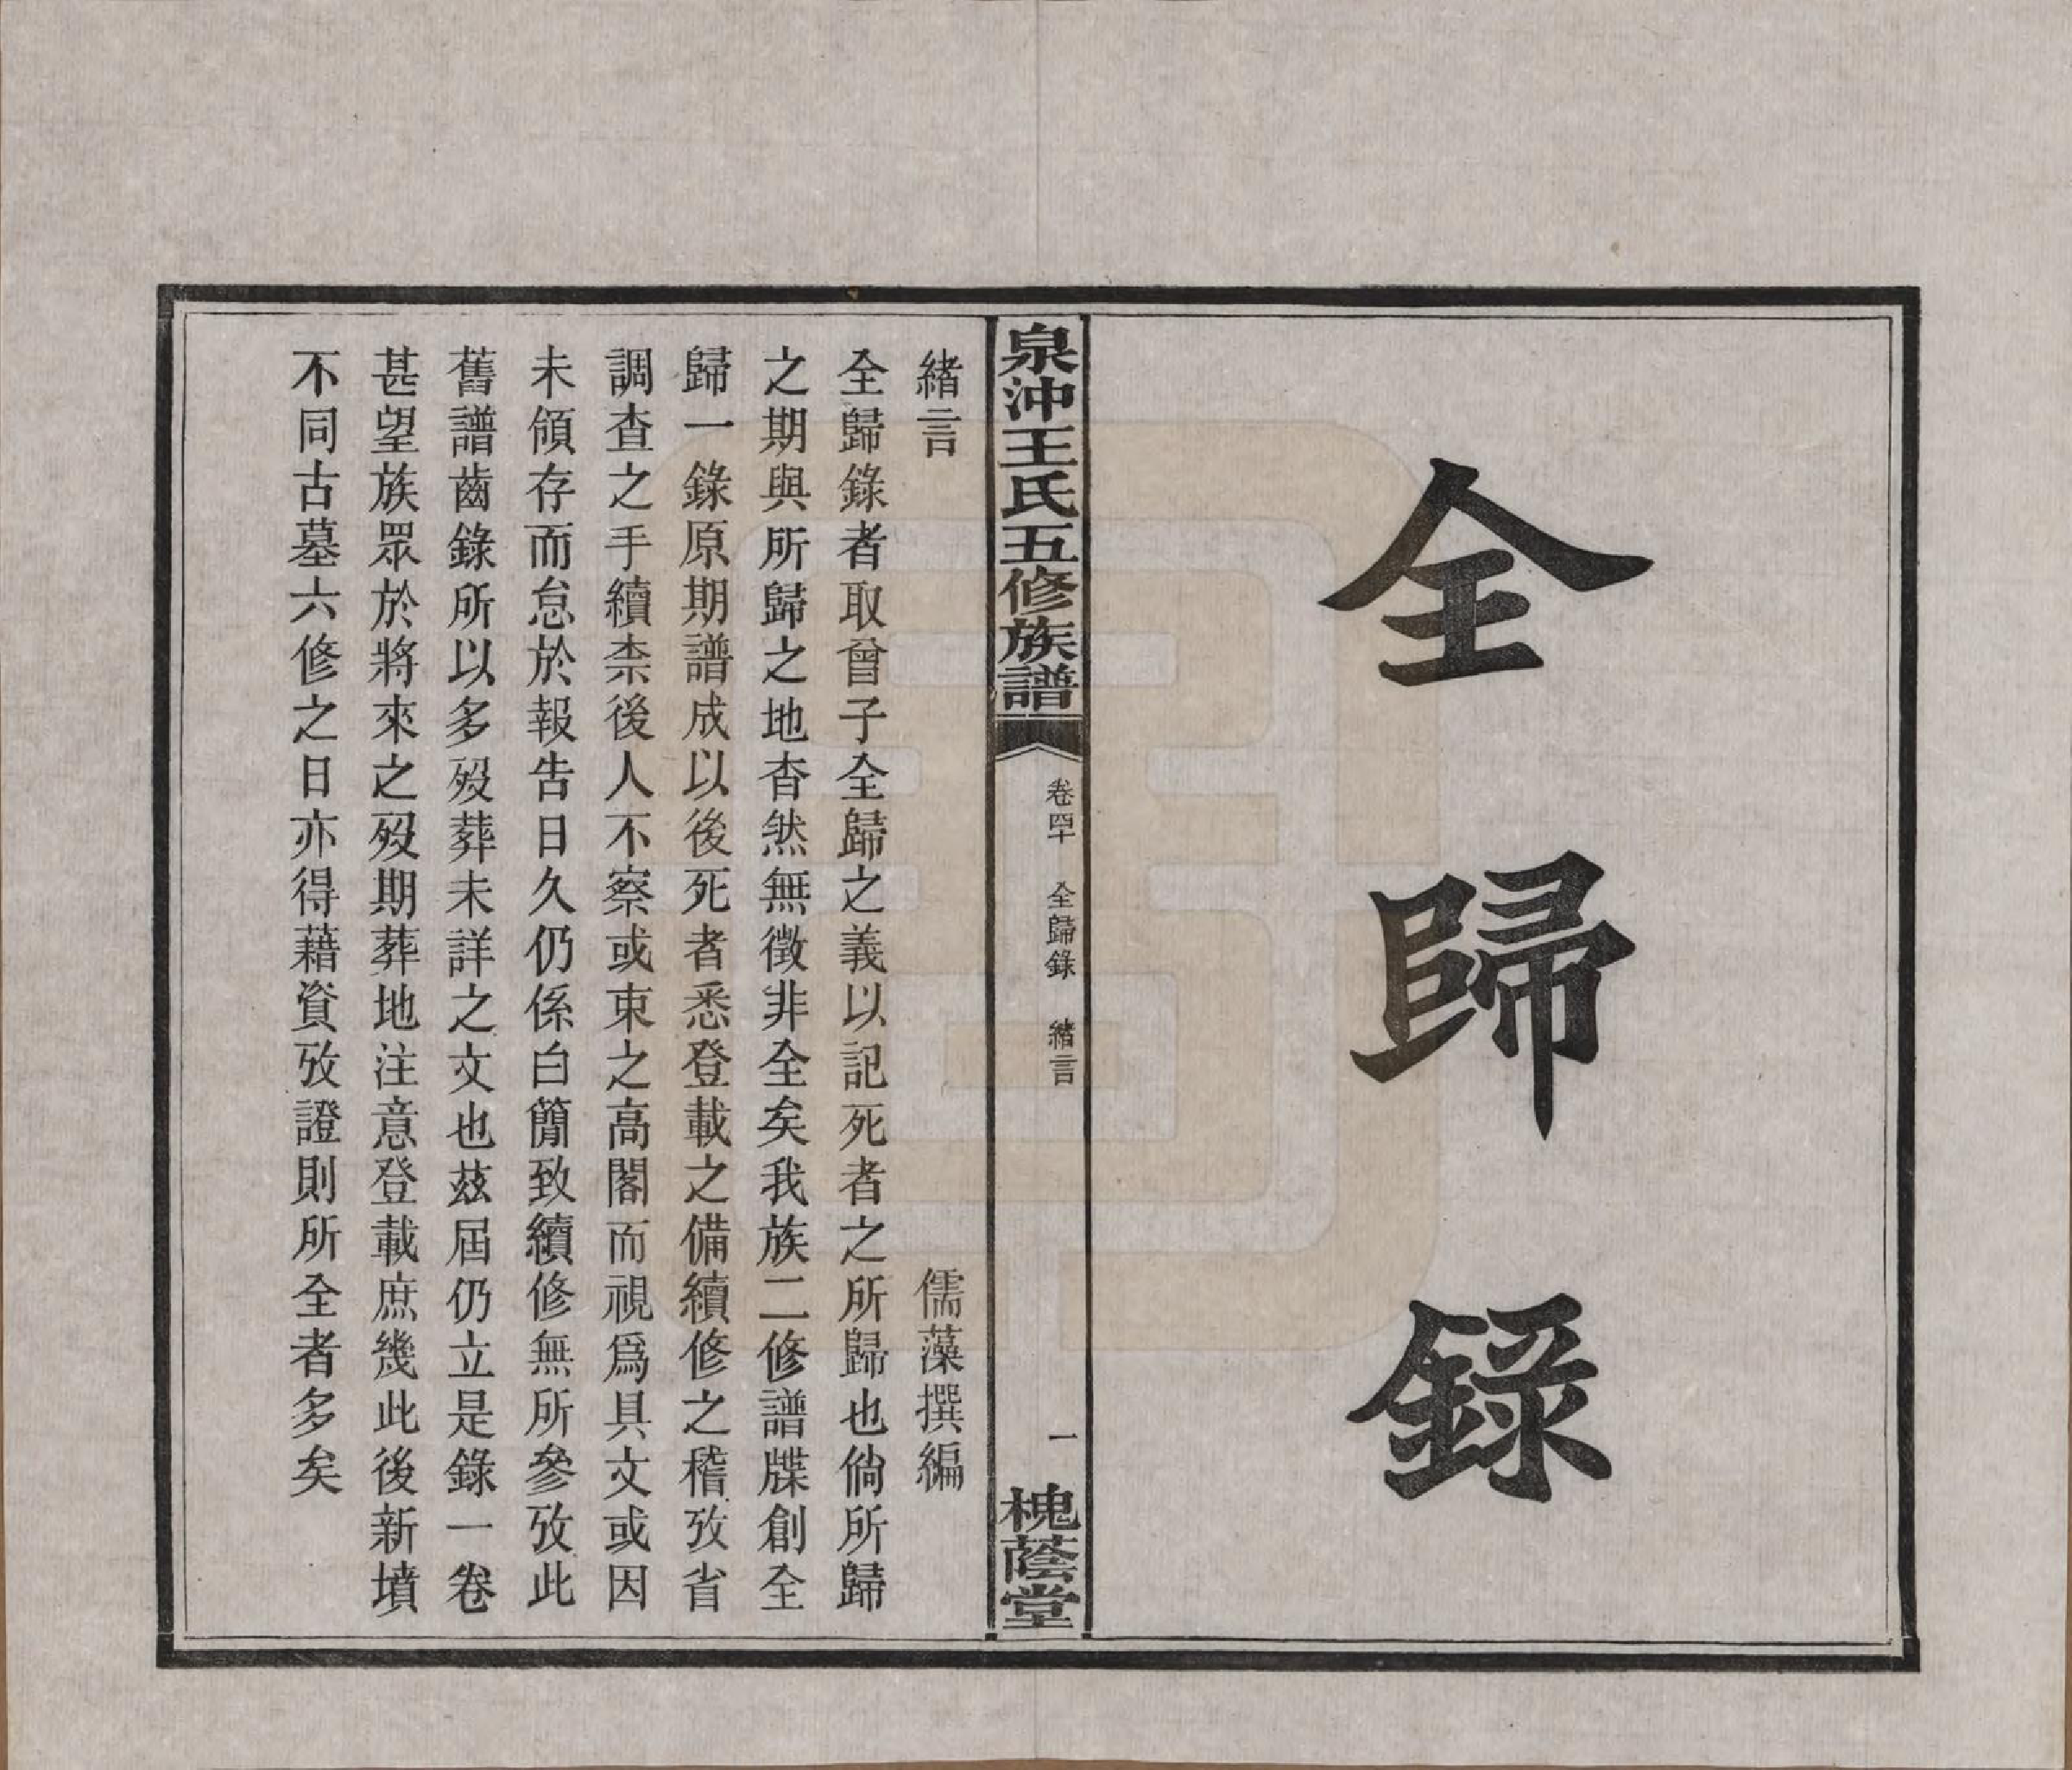 全歸錄
泉沖王氏五修族譜
卷四十
全歸錄
緒言
一
槐蔭堂
緒言
儒藻撰編
全歸錄者取曾子全歸之義以記死者之所歸也倘所歸
之期與所歸之地杳然無徵非全矣我族二修譜牒創全
歸一錄原期譜成以後死者悉登載之備續修之稽攷省
調查之手續柰後人不察或束之高閣而視爲具文或因
未領存而怠於報告日久仍係白簡致續修無所參攷此
舊譜齒錄所以多歿葬未詳之文也茲屆仍立是錄一卷
甚望族眾於將來之歿期葬地注意登載庶幾此後新墳
不同古墓六修之日亦得藉資攷證則所全者多矣